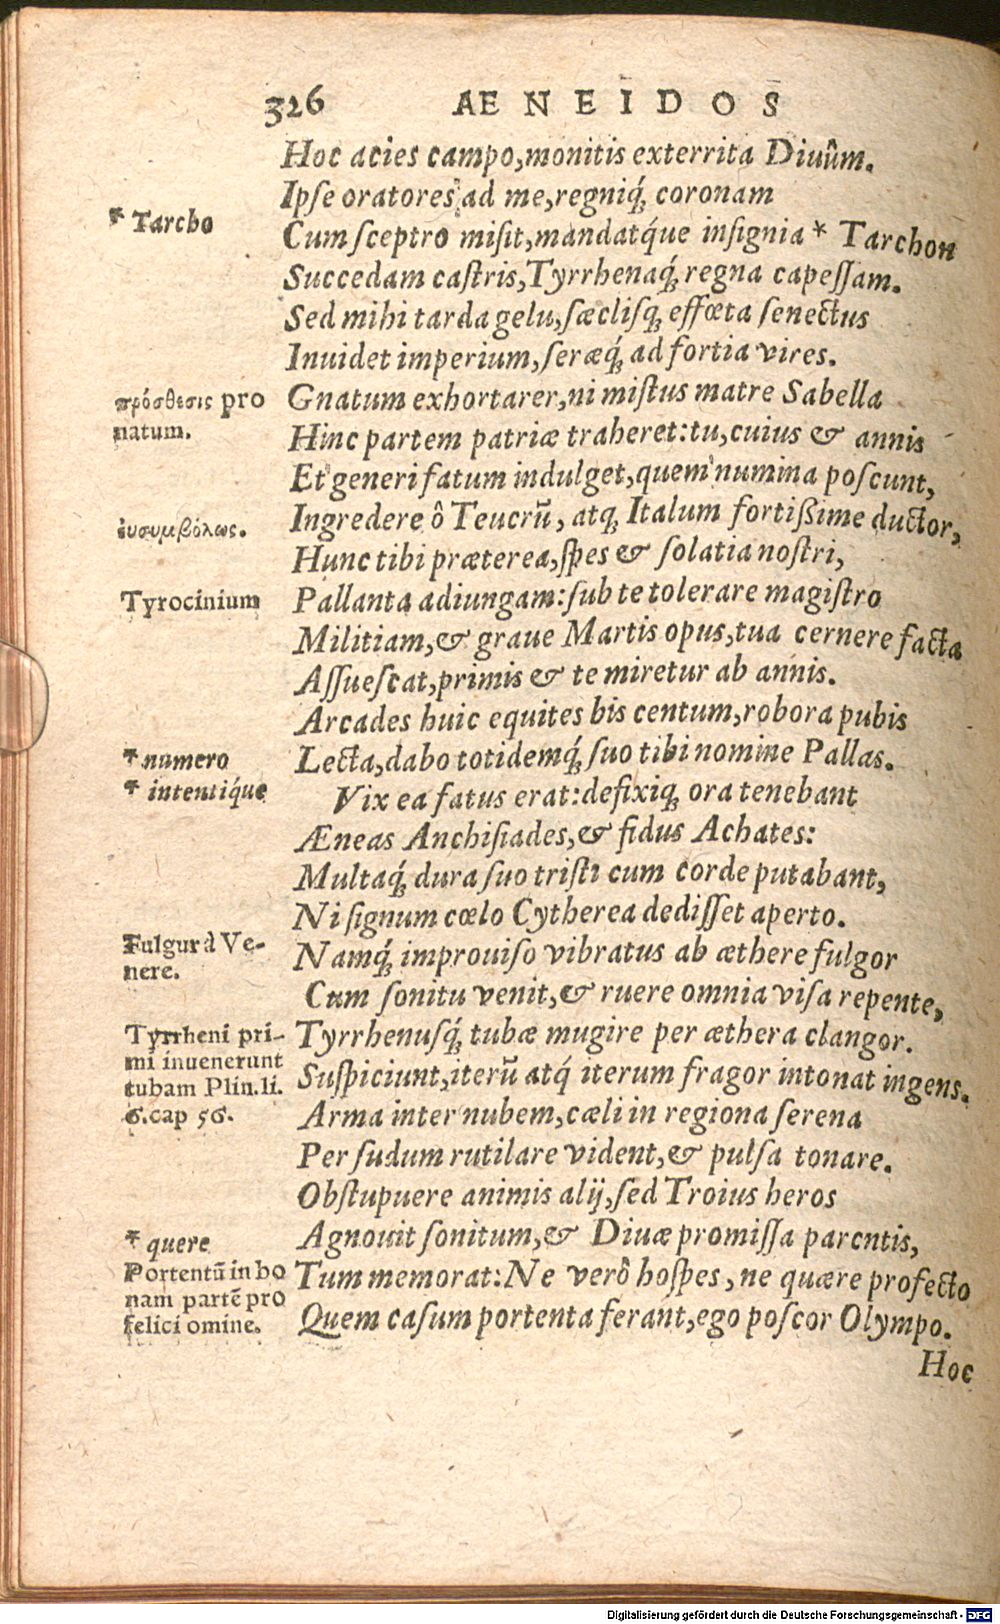 326 AENEIDOS
Hoc acies campo, monitis exterrita Diuûm.
Ipse oratores ad me, regniq́; coronam
* Tarcho
Cum sceptro misit, mandatq́ue insignia * Tarchon
Succedam castris, Tyrrhenaq́; regna capessam.
Sed mihi tarda gelu, sæclisq; effœta senectus
Inuidet imperium, seræq́; ad fortia vires.
πρόσθεσις pro
natum.
Gnatum exhortarer, ni mistus matre Sabella
Hinc partem patriæ traheret: tu, cuius & annis
Et generi fatum indulget, quem numina poscunt,
ἐυσυμβόλως.
Ingredere ô Teucrũ, atq; Italum fortißime ductor,
Hunc tibi præterea, spes & solatia nostri,
Tyrocinium
Pallanta adiungam: sub te tolerare magistro
Militiam, & graue Martis opus, tua cernere facta
Assuescat, primis & te miretur ab annis.
Arcades huic equites bis centum, robora pubis
* numero
Lecta, dabo totidemq́; suo tibi nomine Pallas.
* intentiq́ue
Vix ea fatus erat: defixiq; ora tenebant
Æneas Anchisiades, & fidus Achates:
Multaq́; dura suo tristi cum corde putabant,
Ni signum cœlo Cytherea dedisset aperto.
Fulgur à Ve-
nere.
Namq́; improuiso vibratus ab æthere fulgor
Cum sonitu venit, & ruere omnia visa repente,
Tyrrheni pri-
mi inuenerunt
tubam Plin. li.
6. cap 56.
Tyrrhenusq́; tubæ mugire per æthera clangor.
Suspiciunt, iterũ atq́; iterum fragor intonat ingens.
Arma inter nubem, cæli in regiona serena
Per sudum rutilare vident, & pulsa tonare.
Obstupuere animis alij, sed Troius heros
Agnouit sonitum, & Diuæ promissa parentis,
* quere
Portentũ in bo
nam partẽ pro
felici omine.
Tum memorat: Ne verò hospes, ne quære profecto
Quem casum portenta ferant, ego poscor Olympo.
Hoc
Digitalisierung gefördert durch die Deutsche Forschungsgemeinschaft - DFG